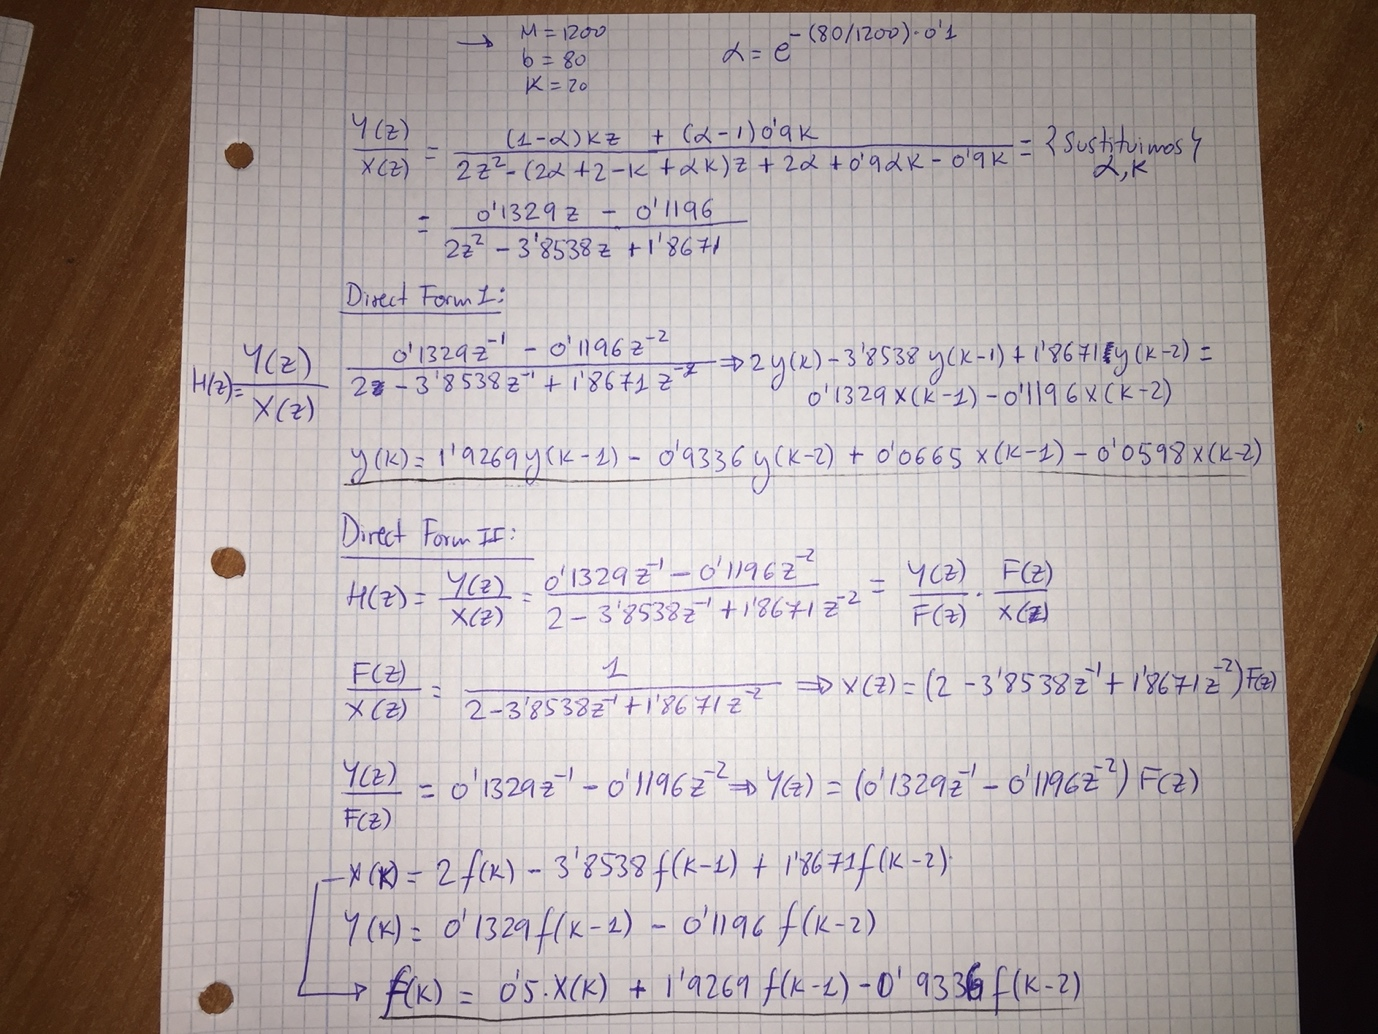 → M = 1200
b = 80
K = 20
α = e^-(80/1200)·0'1
Y(z)/X(z) = ((1-α)Kz + (α-1)0'9K)/(2z² - (2α+2-K+αK)z + 2α + 0'9αK - 0'9K) = {Sustituimos} α,K
= (0'1329z - 0'1196)/(2z² - 3'8538z + 1'8671)
Direct Form I:
H(z) = Y(z)/X(z) (0'1329z⁻¹ - 0'1196z⁻²)/(2 - 3'8538z⁻¹ + 1'8671z⁻²) ⇒ 2y(k) - 3'8538y(k-1) + 1'8671y(k-2) =
0'1329x(k-1) - 0'1196x(k-2)
y(k) = 1'9269y(k-1) - 0'9336y(k-2) + 0'0665x(k-1) - 0'0598x(k-2)
Direct Form II:
H(z) = Y(z)/X(z) = (0'1329z⁻¹ - 0'1196z⁻²)/(2 - 3'8538z⁻¹ + 1'8671z⁻²) = Y(z)/F(z) · F(z)/X(z)
F(z)/X(z) = 1/(2 - 3'8538z⁻¹ + 1'8671z⁻²) ⇒ X(z) = (2 - 3'8538z⁻¹ + 1'8671z⁻²)F(z)
Y(z)/F(z) = 0'1329z⁻¹ - 0'1196z⁻² ⇒ Y(z) = (0'1329z⁻¹ - 0'1196z⁻²) F(z)
X(k) = 2f(k) - 3'8538f(k-1) + 1'8671f(k-2)
Y(k) = 0'1329f(k-1) - 0'1196f(k-2)
→ f(k) = 0'5·X(k) + 1'9269f(k-1) - 0'9336f(k-2)